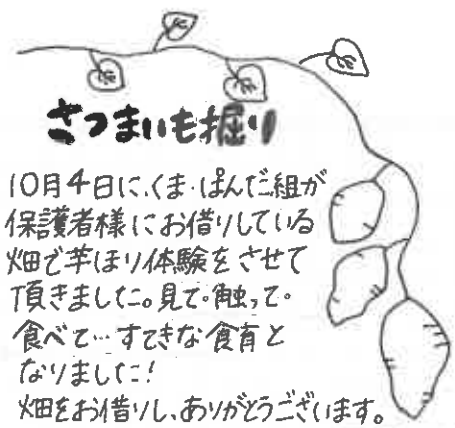 さつまいも掘り
10月4日に、くま・ぱんだ組が
保護者様にお借りしている
畑で芋ほり体験をさせて
頂きました。見て・触って・
食べて…すてきな食育と
なりました!
畑をお借りし、ありがとうございます。